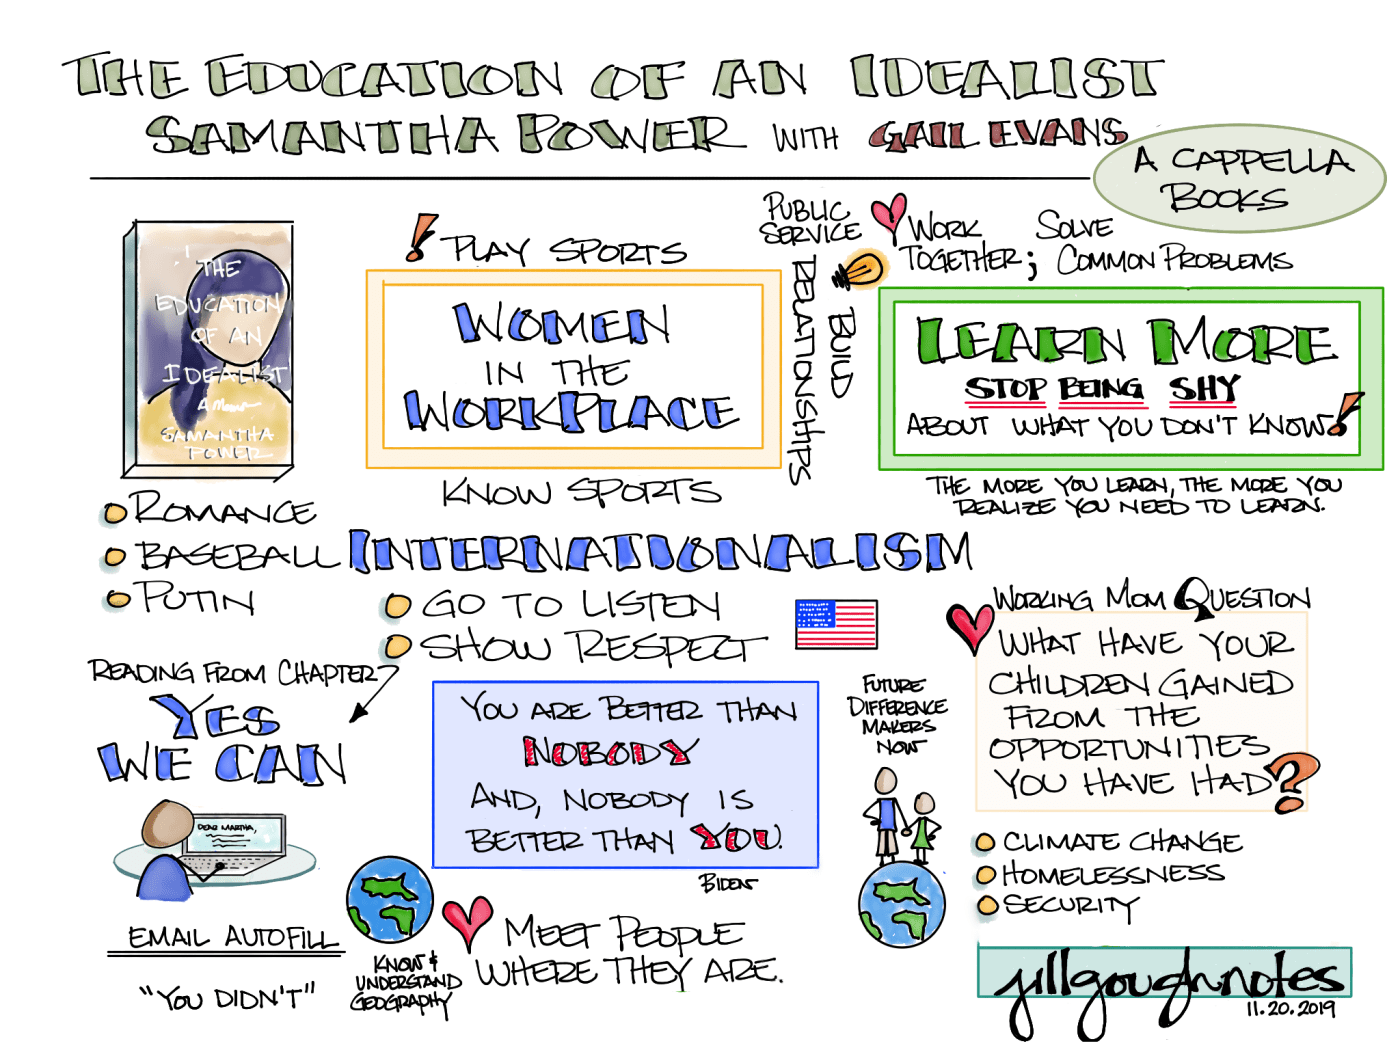 THE EDUCATION OF AN IDEALIST
SAMANTHA POWER WITH GAIL EVANS
A CAPPELLA
BOOKS
THE
EDUCATION
OF AN
IDEALIST
A Memoir
SAMANTHA
POWER
ROMANCE
BASEBALL
PUTIN
! PLAY SPORTS
WOMEN
IN THE
WORKPLACE
KNOW SPORTS
PUBLIC
SERVICE
BUILD
RELATIONSHIPS
WORK
TOGETHER;
SOLVE
COMMON PROBLEMS
LEARN MORE
STOP BEING SHY
ABOUT WHAT YOU DON'T KNOW!
THE MORE YOU LEARN, THE MORE YOU
REALIZE YOU NEED TO LEARN.
INTERNATIONALISM
GO TO LISTEN
SHOW RESPECT
READING FROM CHAPTER?
YES
WE CAN
DEAR MARTHA,
EMAIL AUTOFILL
"YOU DIDN'T"
YOU ARE BETTER THAN
NOBODY
AND, NOBODY IS
BETTER THAN YOU.
BIDEN
KNOW &
UNDERSTAND
GEOGRAPHY
MEET PEOPLE
WHERE THEY ARE.
FUTURE
DIFFERENCE
MAKERS
NOW
WORKING MOM QUESTION
WHAT HAVE YOUR
CHILDREN GAINED
FROM THE
OPPORTUNITIES
YOU HAVE HAD?
CLIMATE CHANGE
HOMELESSNESS
SECURITY
jillgoughnotes
11.20.2019